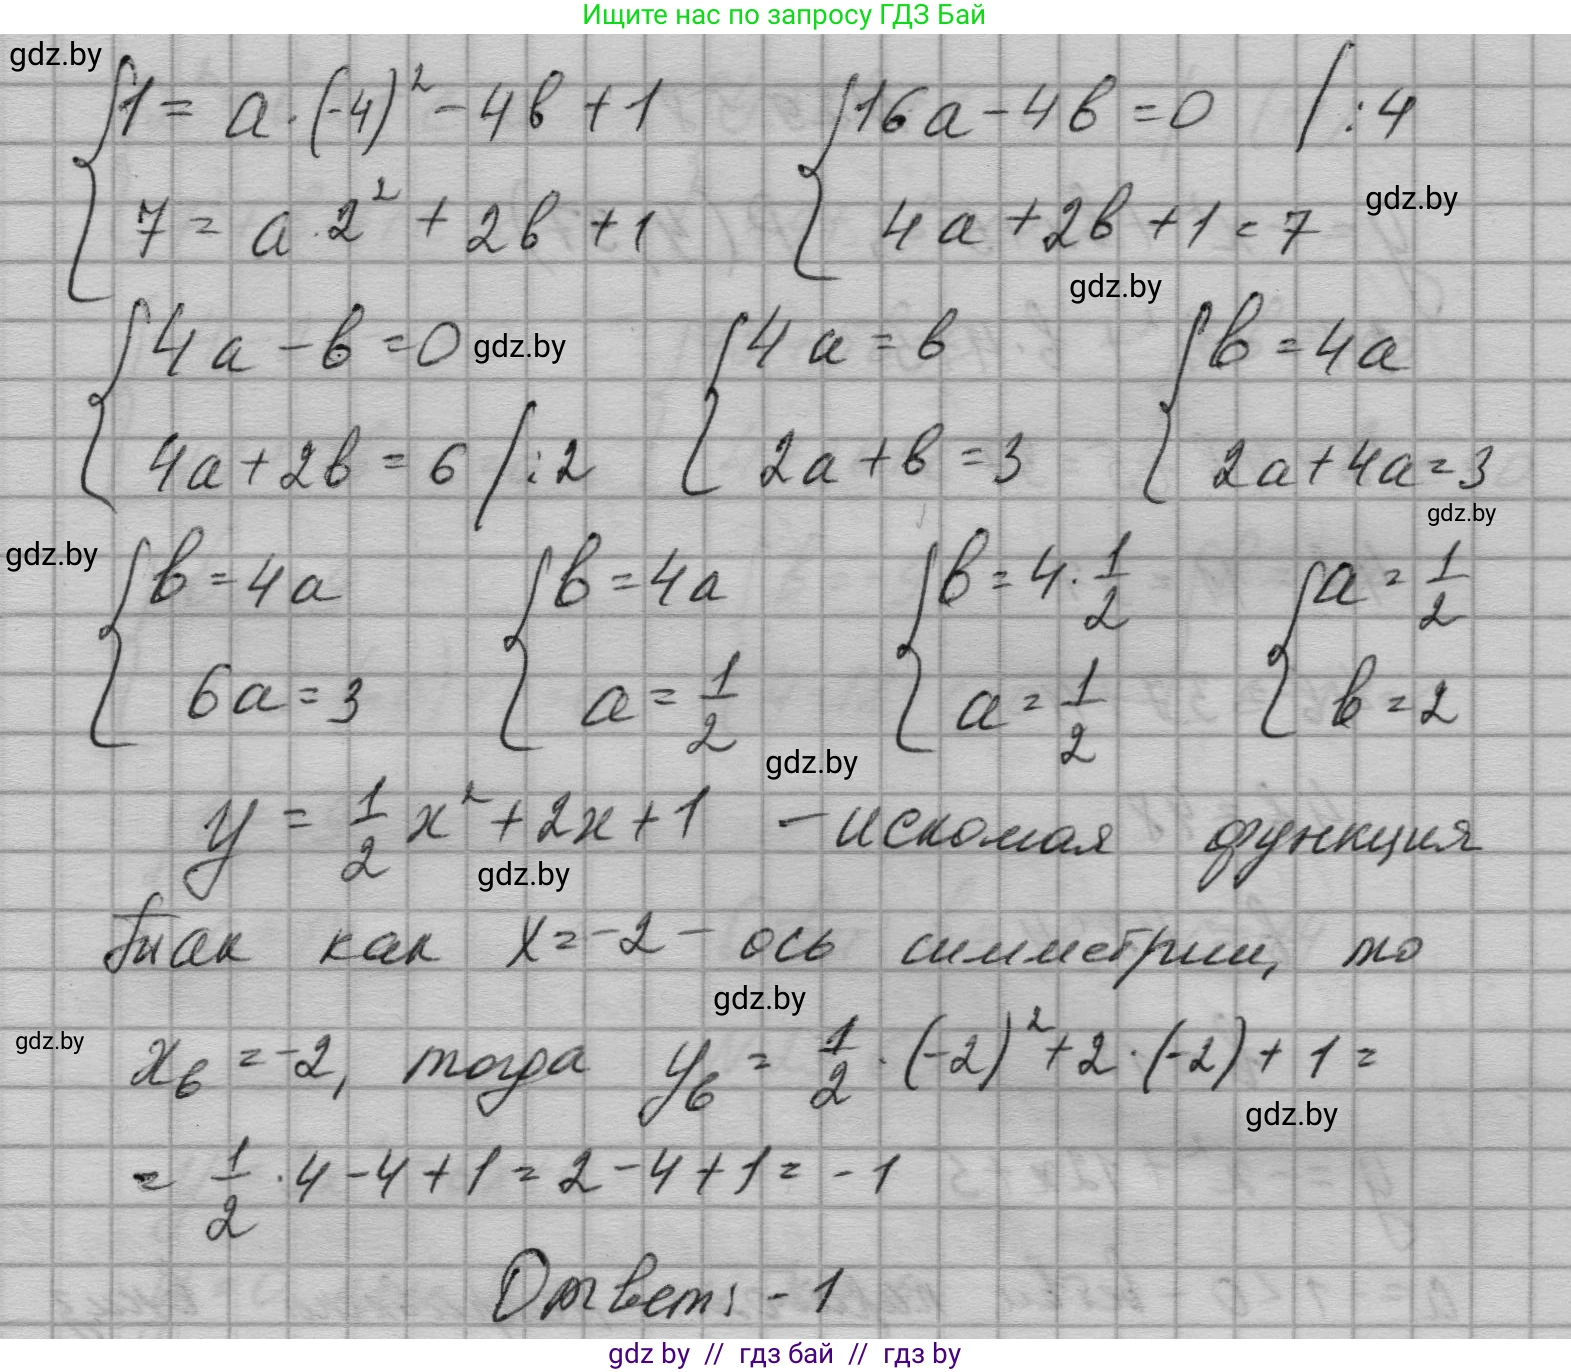 Ищите нас по запросу ГДЗ Бай
gdz.by
{ 1 = a · (-4)² - 4в + 1 { 16a - 4в = 0 / : 4
7 = a · 2² + 2в + 1 4a + 2в + 1 = 7 gdz.by
gdz.by
{ 4a - в = 0 gdz.by { 4a = в { в = 4a
4a + 2в = 6 / : 2 2a + в = 3 2a + 4a = 3
gdz.by
gdz.by { в = 4a { в = 4a { в = 4 · 1/2 { a = 1/2
6a = 3 a = 1/2 a = 1/2 в = 2
gdz.by
y = 1/2 x² + 2x + 1 - искомая функция
gdz.by
Так как x = -2 - ось симметрии, то
gdz.by
gdz.by xв = -2, тогда yв = 1/2 · (-2)² + 2 · (-2) + 1 =
gdz.by
= 1/2 · 4 - 4 + 1 = 2 - 4 + 1 = -1
Ответ: -1
gdz by // гдз бай // гдз by